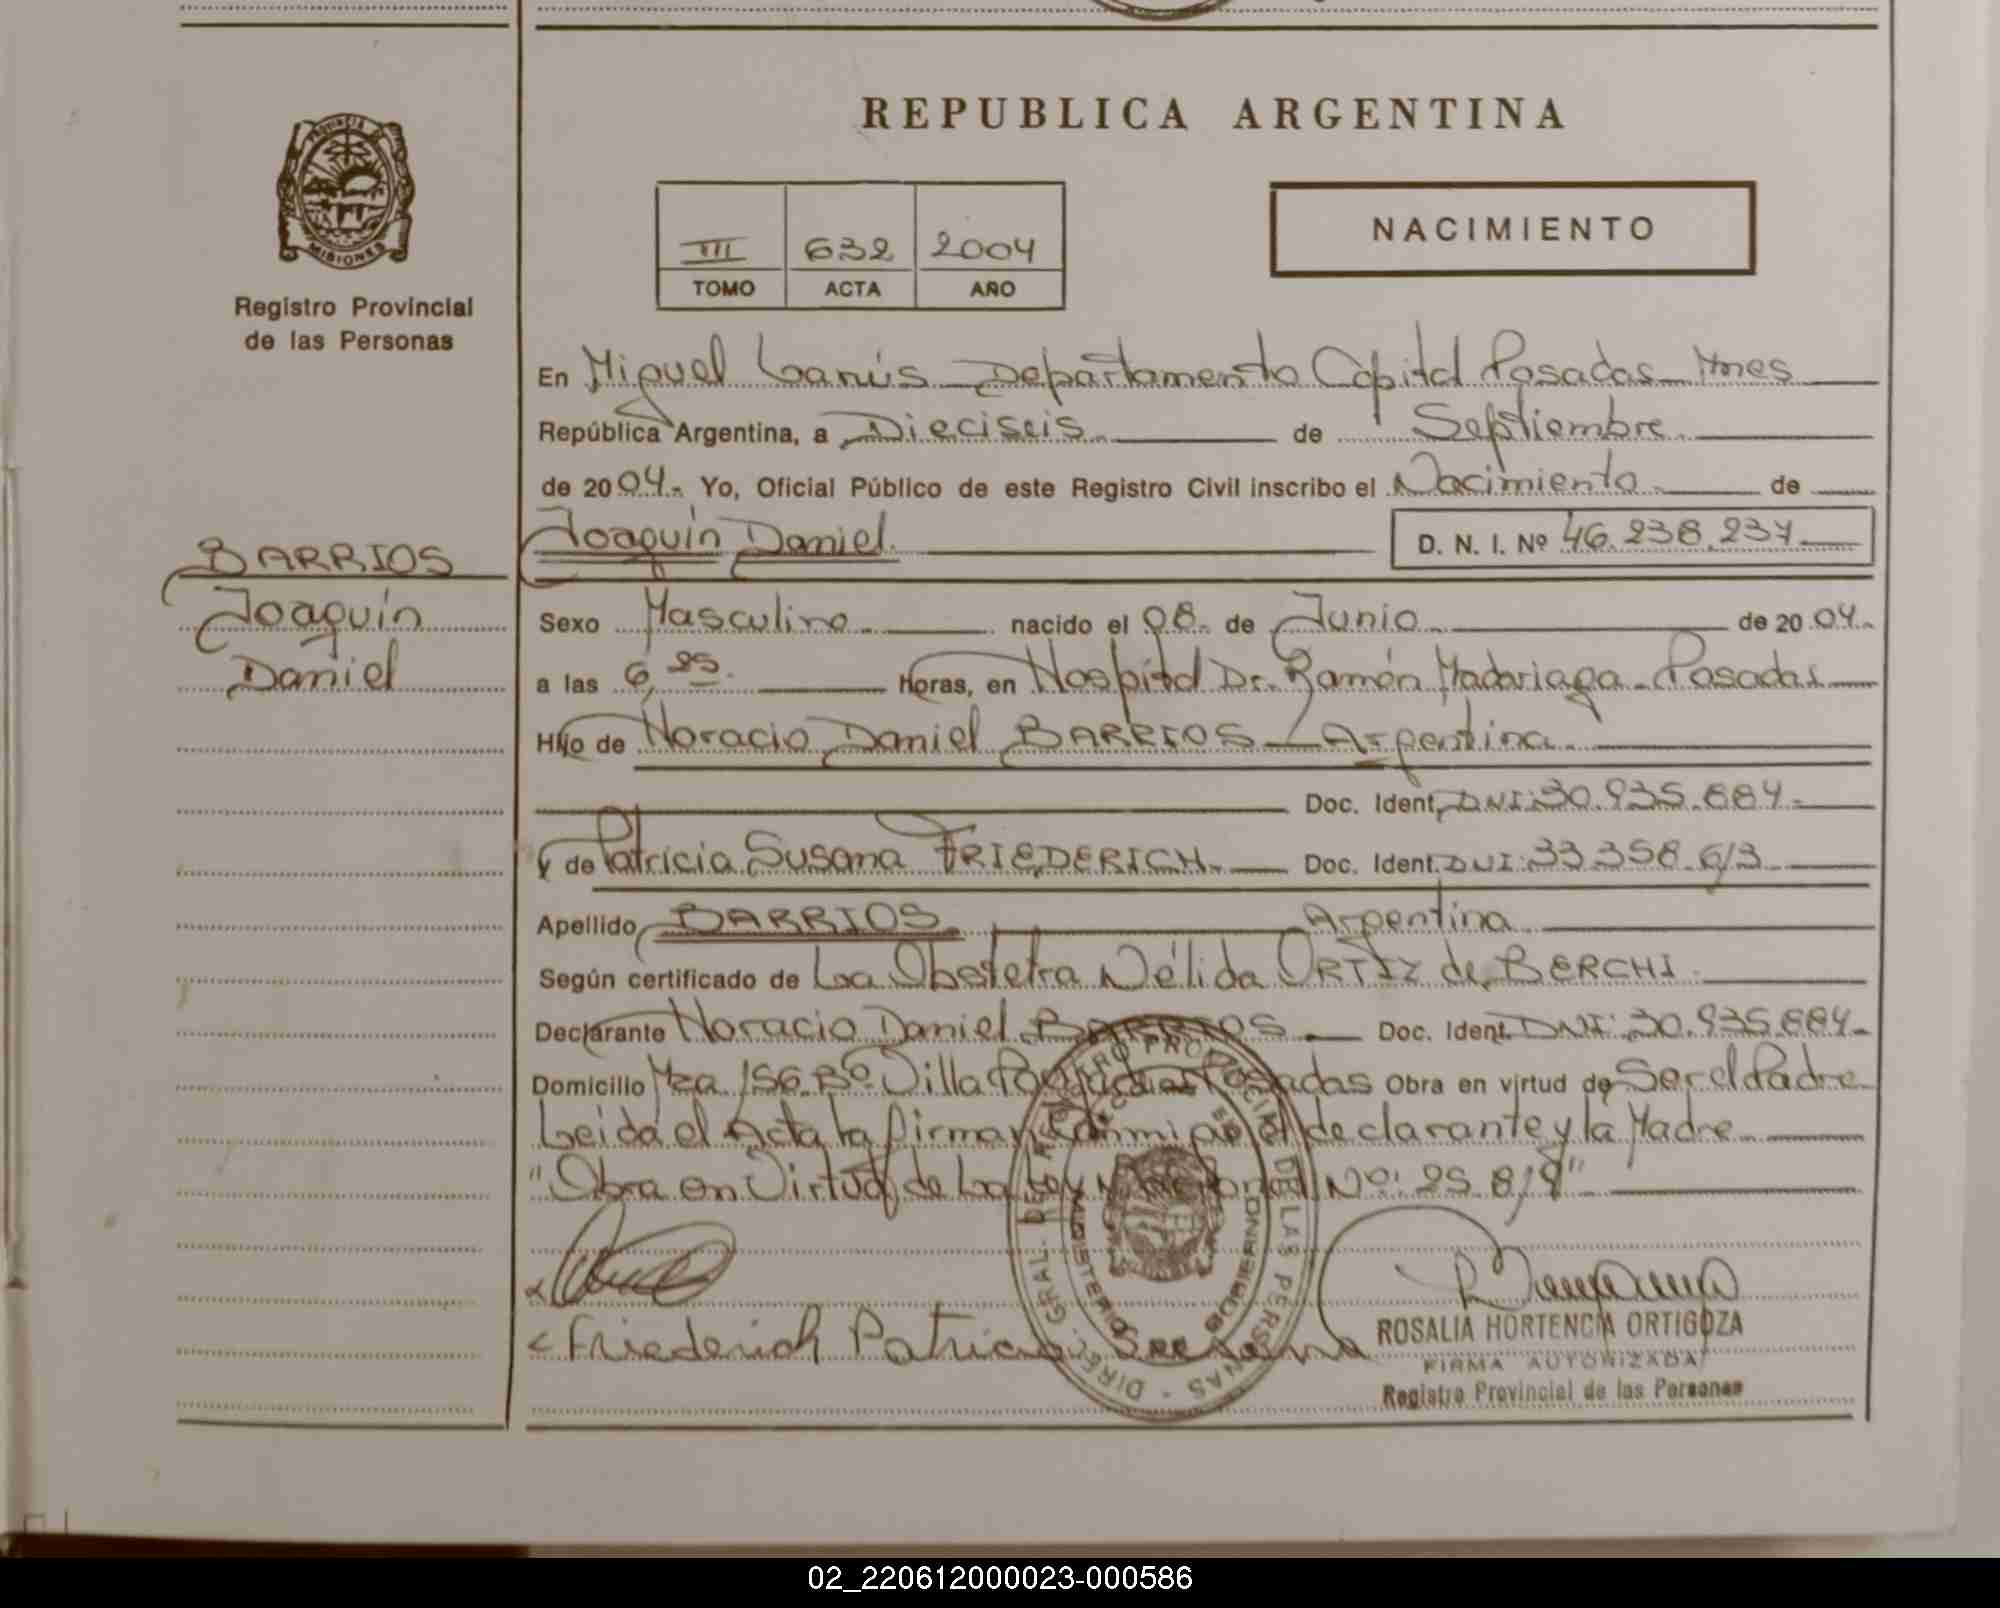 REPUBLICA ARGENTINA
PROVINCIA DE
MISIONES
Registro Provincial
de las Personas
III 632 2004
TOMO ACTA AÑO
NACIMIENTO
En Miguel Lanús Departamento Capital Posadas Mnes
República Argentina, a Dieciseis de Septiembre
de 2004.- Yo, Oficial Público de este Registro Civil inscribo el Nacimiento de
Joaquín Daniel. D. N. I. Nº 46.238.237
BARRIOS
Joaquín
Daniel
Sexo Masculino nacido el 08. de Junio de 2004.-
a las 6,25. horas, en Hospital Dr. Ramón Madariaga - Posadas
Hijo de Horacio Daniel BARRIOS - Argentina
Doc. Ident. DNI: 30.935.884.-
y de Patricia Susana FRIEDERICH.- Doc. Ident. DNI: 33.358.613
Apellido BARRIOS Argentina
Según certificado de La Obstetra Nélida ORTIZ de BERCHI.
Declarante Horacio Daniel BARRIOS. Doc. Ident. DNI: 30.935.884.-
Domicilio Mza 156. Bº Villa Posadas Obra en virtud de Ser el Padre
Leida el Acta la firman conmigo el declarante y la Madre
"Obra en Virtud de La Ley Nacional Nº: 25.819"
Friederich Patricia Susana
DIREC. GRAL. DEL REGISTRO PROVINCIAL DE LAS PERSONAS
MINISTERIO DE GOBIERNO
ROSALIA HORTENCIA ORTIGOZA
FIRMA AUTORIZADA
Registro Provincial de las Personas
02_220612000023-000586